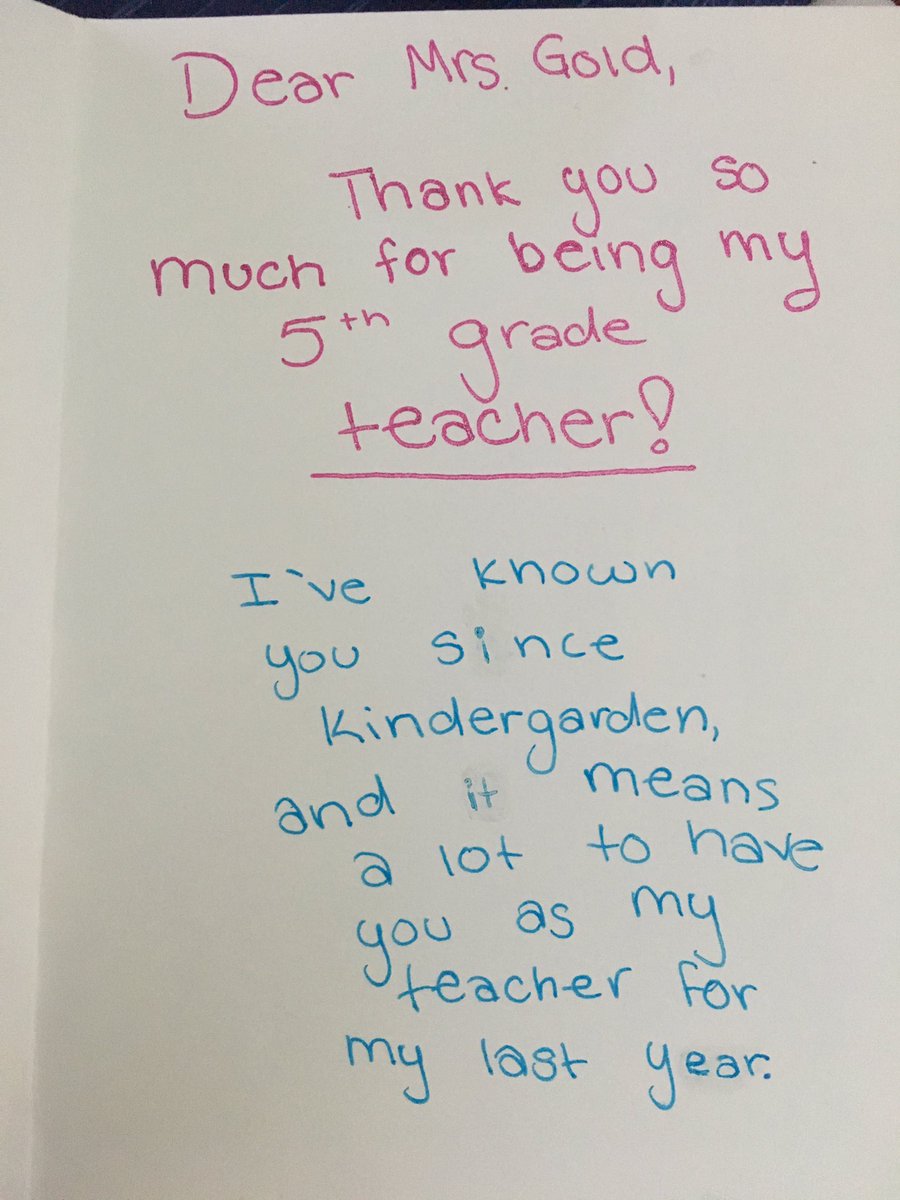 Dear Mrs. Gold,
Thank you so
much for being my
5th grade
teacher!
I've known
you since
kindergarden,
and it means
a lot to have
you as my
teacher for
my last year.